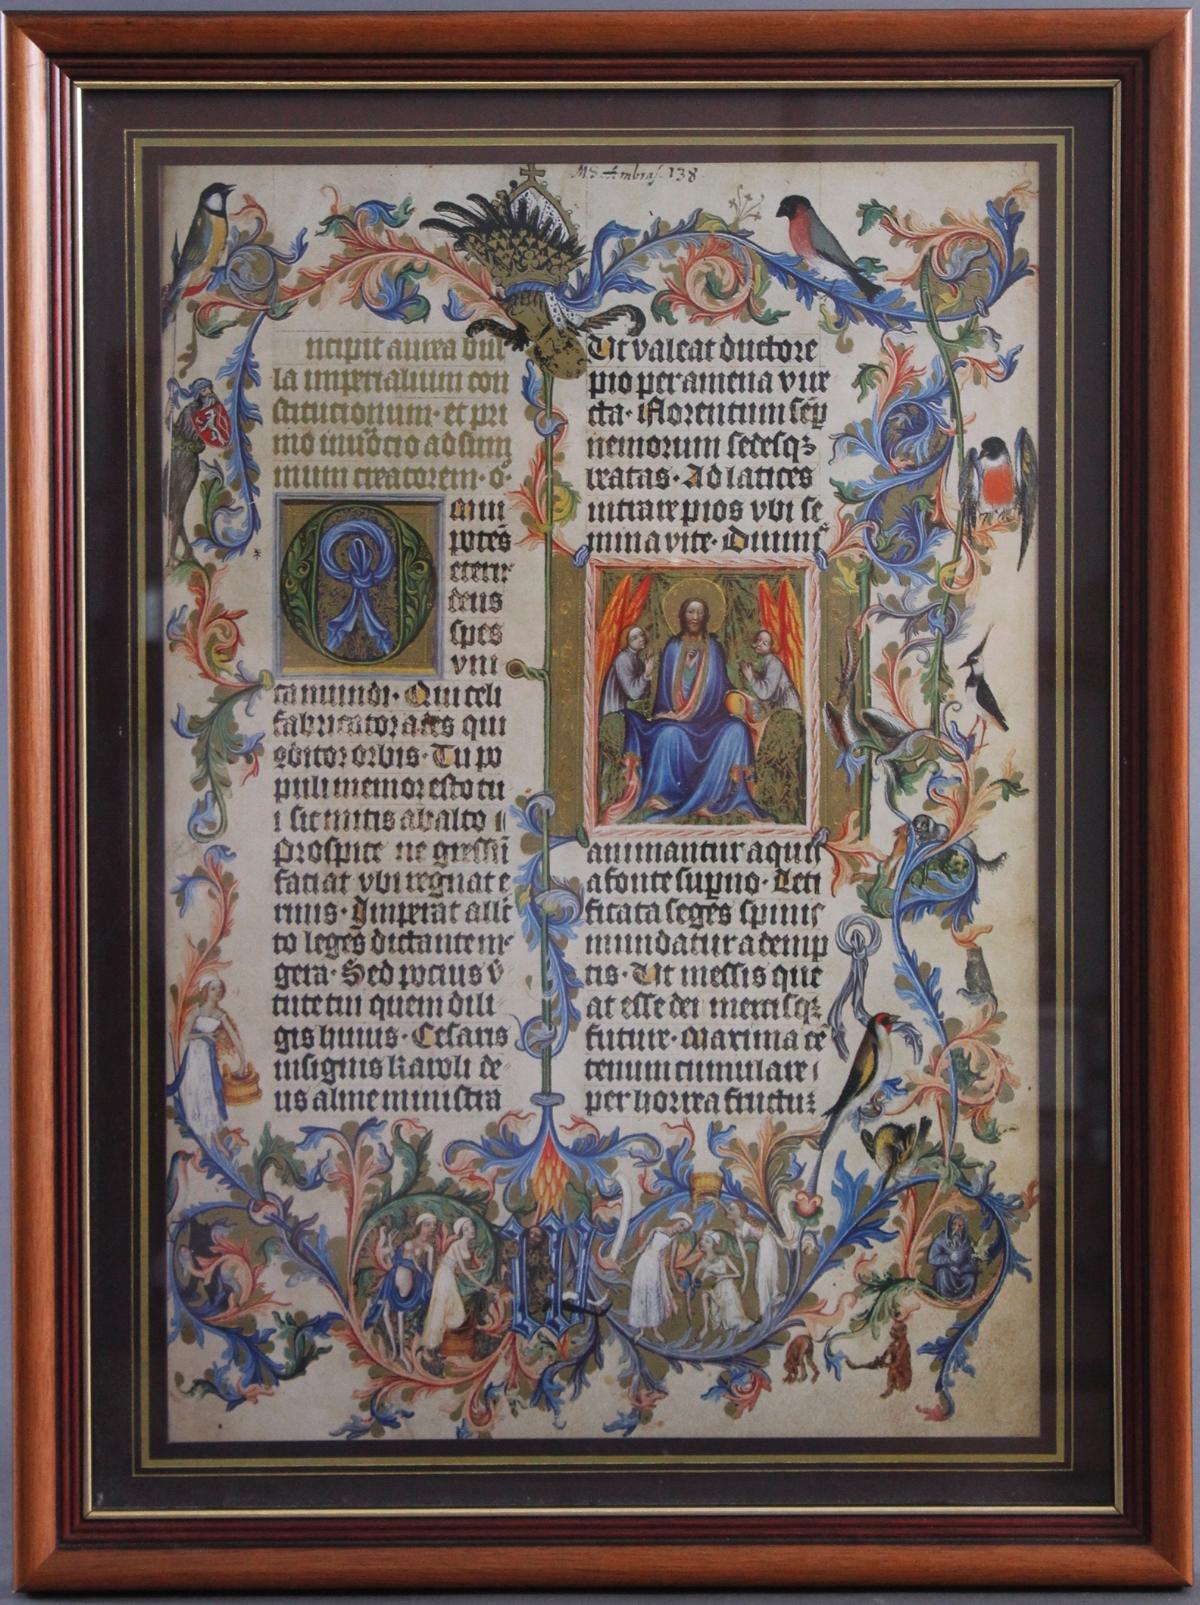 MS. Ambras. 138.
ncipit aurea bul
la imperialium con
stitucionum · et pri
mo inuocio ad sum
mum creatorem · o ·
mni
potēs
eterne
deus
spes
vni
ca mundi · Qui celi
fabricator ades qui
gditor orbis · Tu po
puli memor esto tu
i sic mitis ab alto
Prospice ne gressū
faciat vbi regnat e
rinis · Imperat alle
to leges dictante me
gera · Sed pocius v̄
tute tui quem dili
gis huius · Cesaris
insignis karoli de
us alme ministra
Ut valeat ductore
pio per amena vire
cta · Florentum semp
nemorum sedesq3
beatas · Ad latices
intrare pios vbi se
mina vite · Diuinis
animantur aquis
a fonte supno · Leti
ficata seges spinis
mundatur ademp
tis · Ut messis que
at esse dei mercisq3
future · Maxima cē
tenum cumulare
per horrea fructuz
W